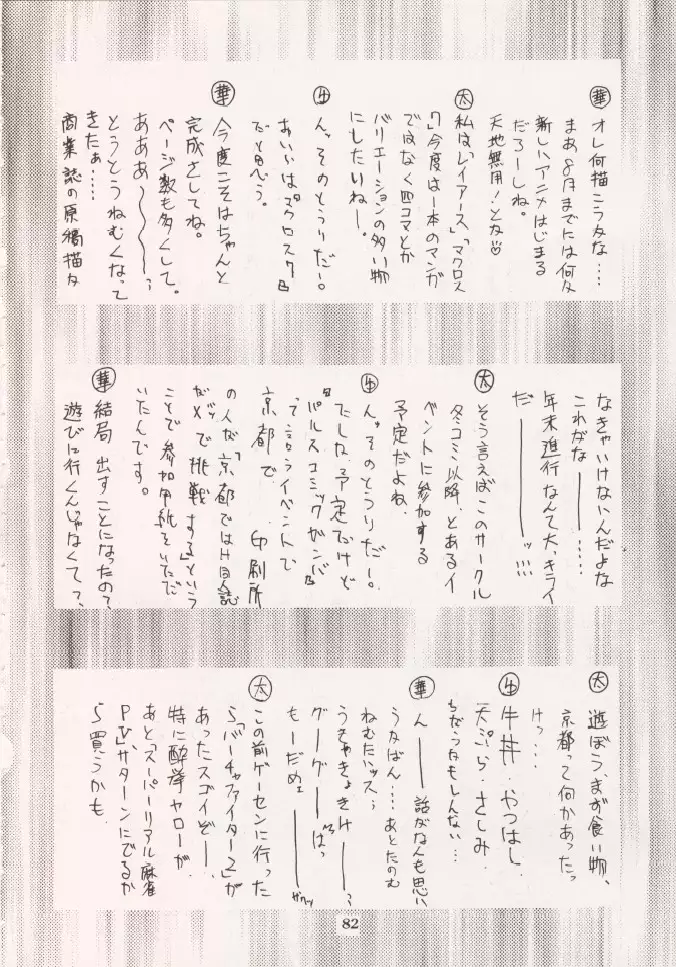 華 オレ何描こうかな……
まあ8月までには何か
新しいアニメはじまる
だろーしね。
天地無用!とか♡
太 私は「レイアース」「マクロス
7」今度は一本のマンガ
ではなく四コマとか
バリエーションの多い物
にしたいねー。
牛 んッそのとうりだー。
あいいは マクロス7
だと思う。
華 今度こそはちゃんと
完成さしてね。
ページ数も多くして。
あああ〜〜〜〜
とうとうねむくなって
きたぁ……
商業誌の原稿描か
なきゃいけないんだよな
これがな――……
年末進行なんて大キライ
だ――――ッ!!!
太 そう言えばこのサークル
冬コミ以降、とあるイ
ベントに参加する
予定だよね
牛 んッそのとうりだー。
たしか予定だけど
「パルスコミックガンバ」
って言うイベントで
京都で 印刷所
の人が「京都ではH同人誌
だめで挑戦する」という
ことで参加用紙をいただ
いたんです。
華 結局 出すことになったの?
遊びに行くんじゃなくて?
太 遊ぼう、まず食い物、
京都って何かあったっ
けっ…
牛 牛丼・やつはし、
天ぷら・さしみ
ちがうかもしんない…
華 ん――話がなんも思い
うかばん…あとたのむ
ねむたいッス
うきゃきょきけ――
グーグー
もーだめェ――
太 この前ゲーセンに行った
ら「バーチャファイター2」が
あったスゴイぞ――
特に酔拳ヤローが
あと「スーパーリアル麻雀
PⅣ」サターンにでるか
ら買うかも.
82